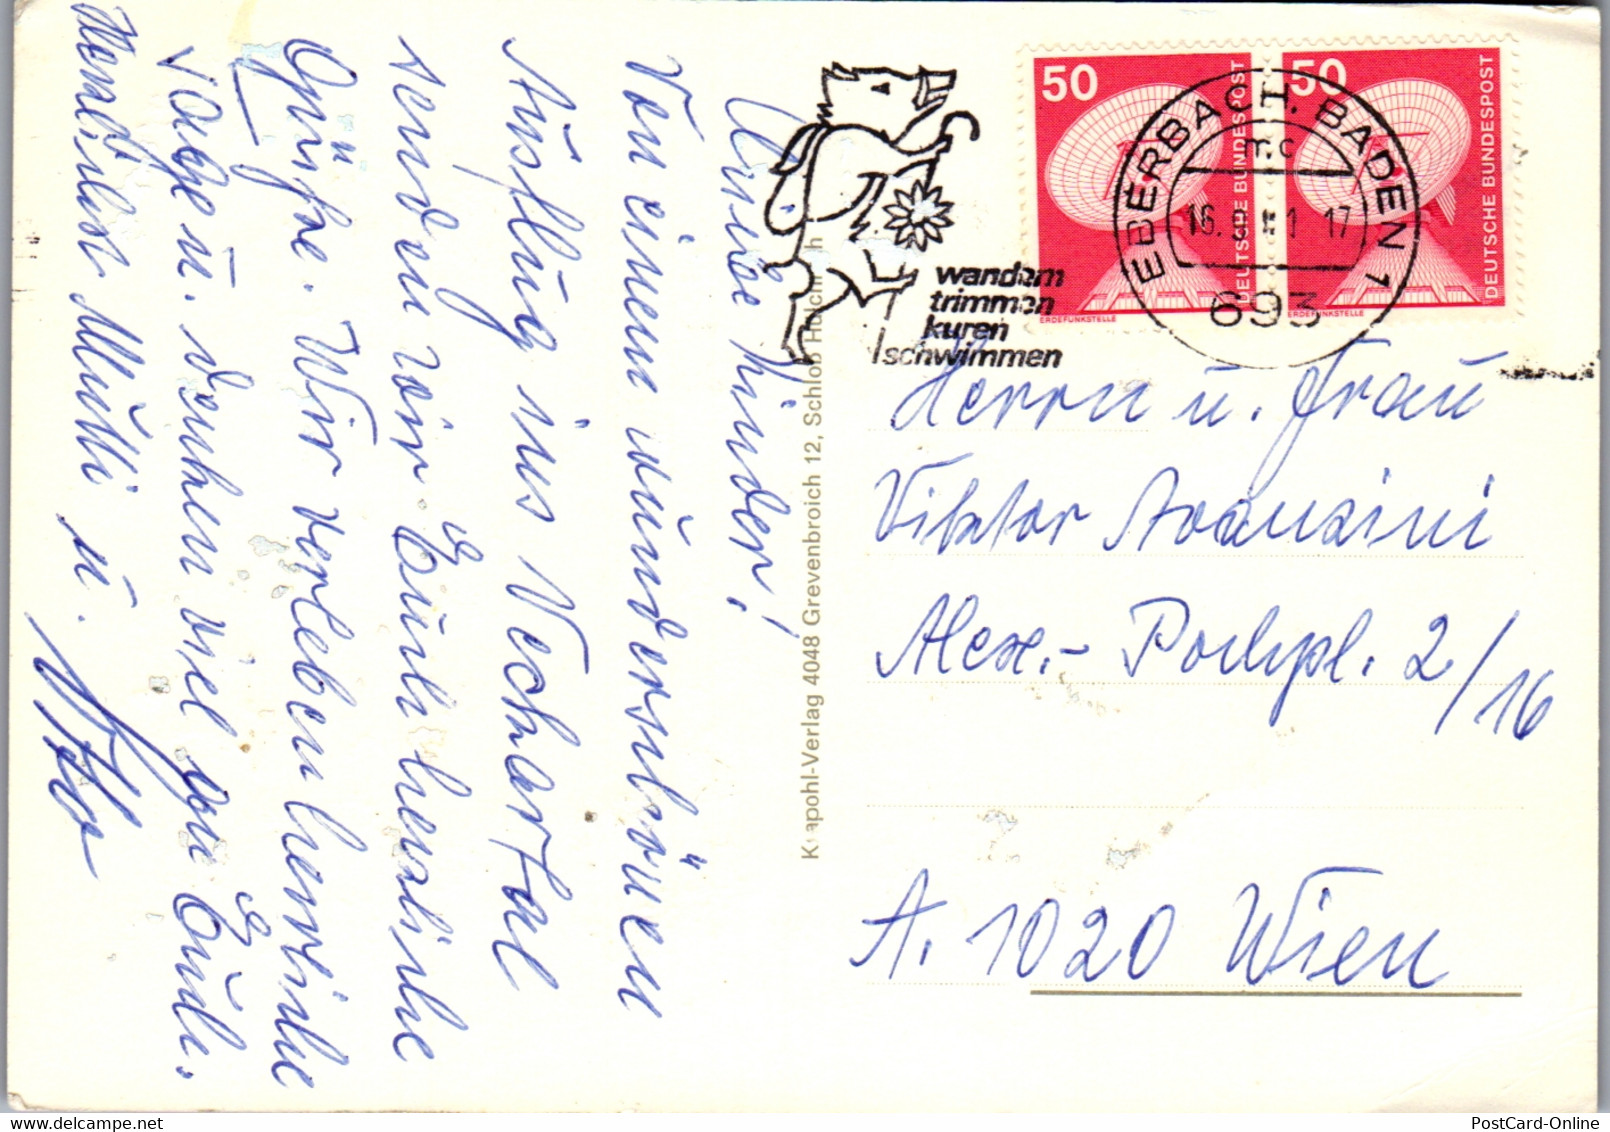 Liebe Kinder!
Von einem wunderschönen
Ausflug ins Neckartal
senden wir Euch herzliche
Grüße. Wir verleben herrliche
Tage u. denken viel an Euch.
Herzlichst Mutti u.
50
DEUTSCHE BUNDESPOST
ERDEFUNKSTELLE
50
DEUTSCHE BUNDESPOST
ERDEFUNKSTELLE
EBERBACH, BADEN 1
mc
693
wandern
trimmen
kuren
schwimmen
Krapohl-Verlag 4048 Grevenbroich 12, Schloß Hülchrath
Herrn u. Frau
Viktor
Alex.-Pochpl. 2/16
A. 1020 Wien
PostCard-Online